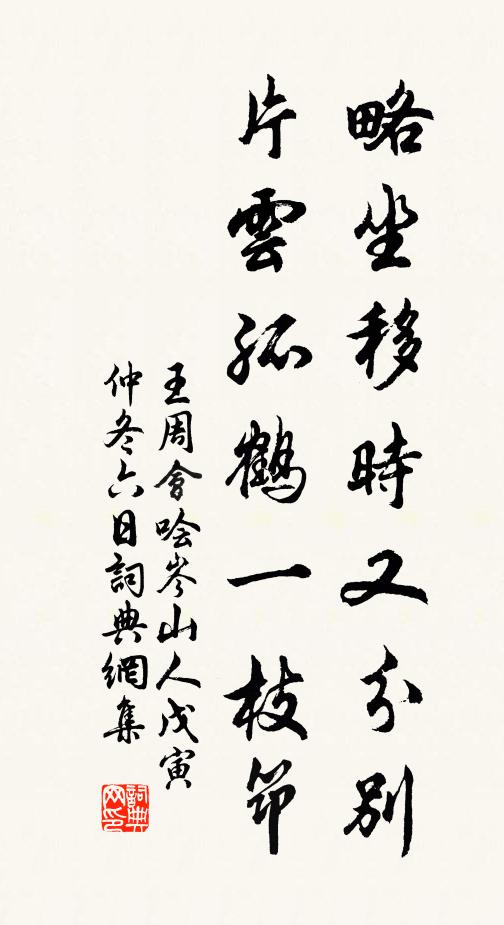 略坐移時又分別
片雲孤鶴一枝筇
王周會噲岑山人戊寅
仲冬六日詞典網集
詞典
网印